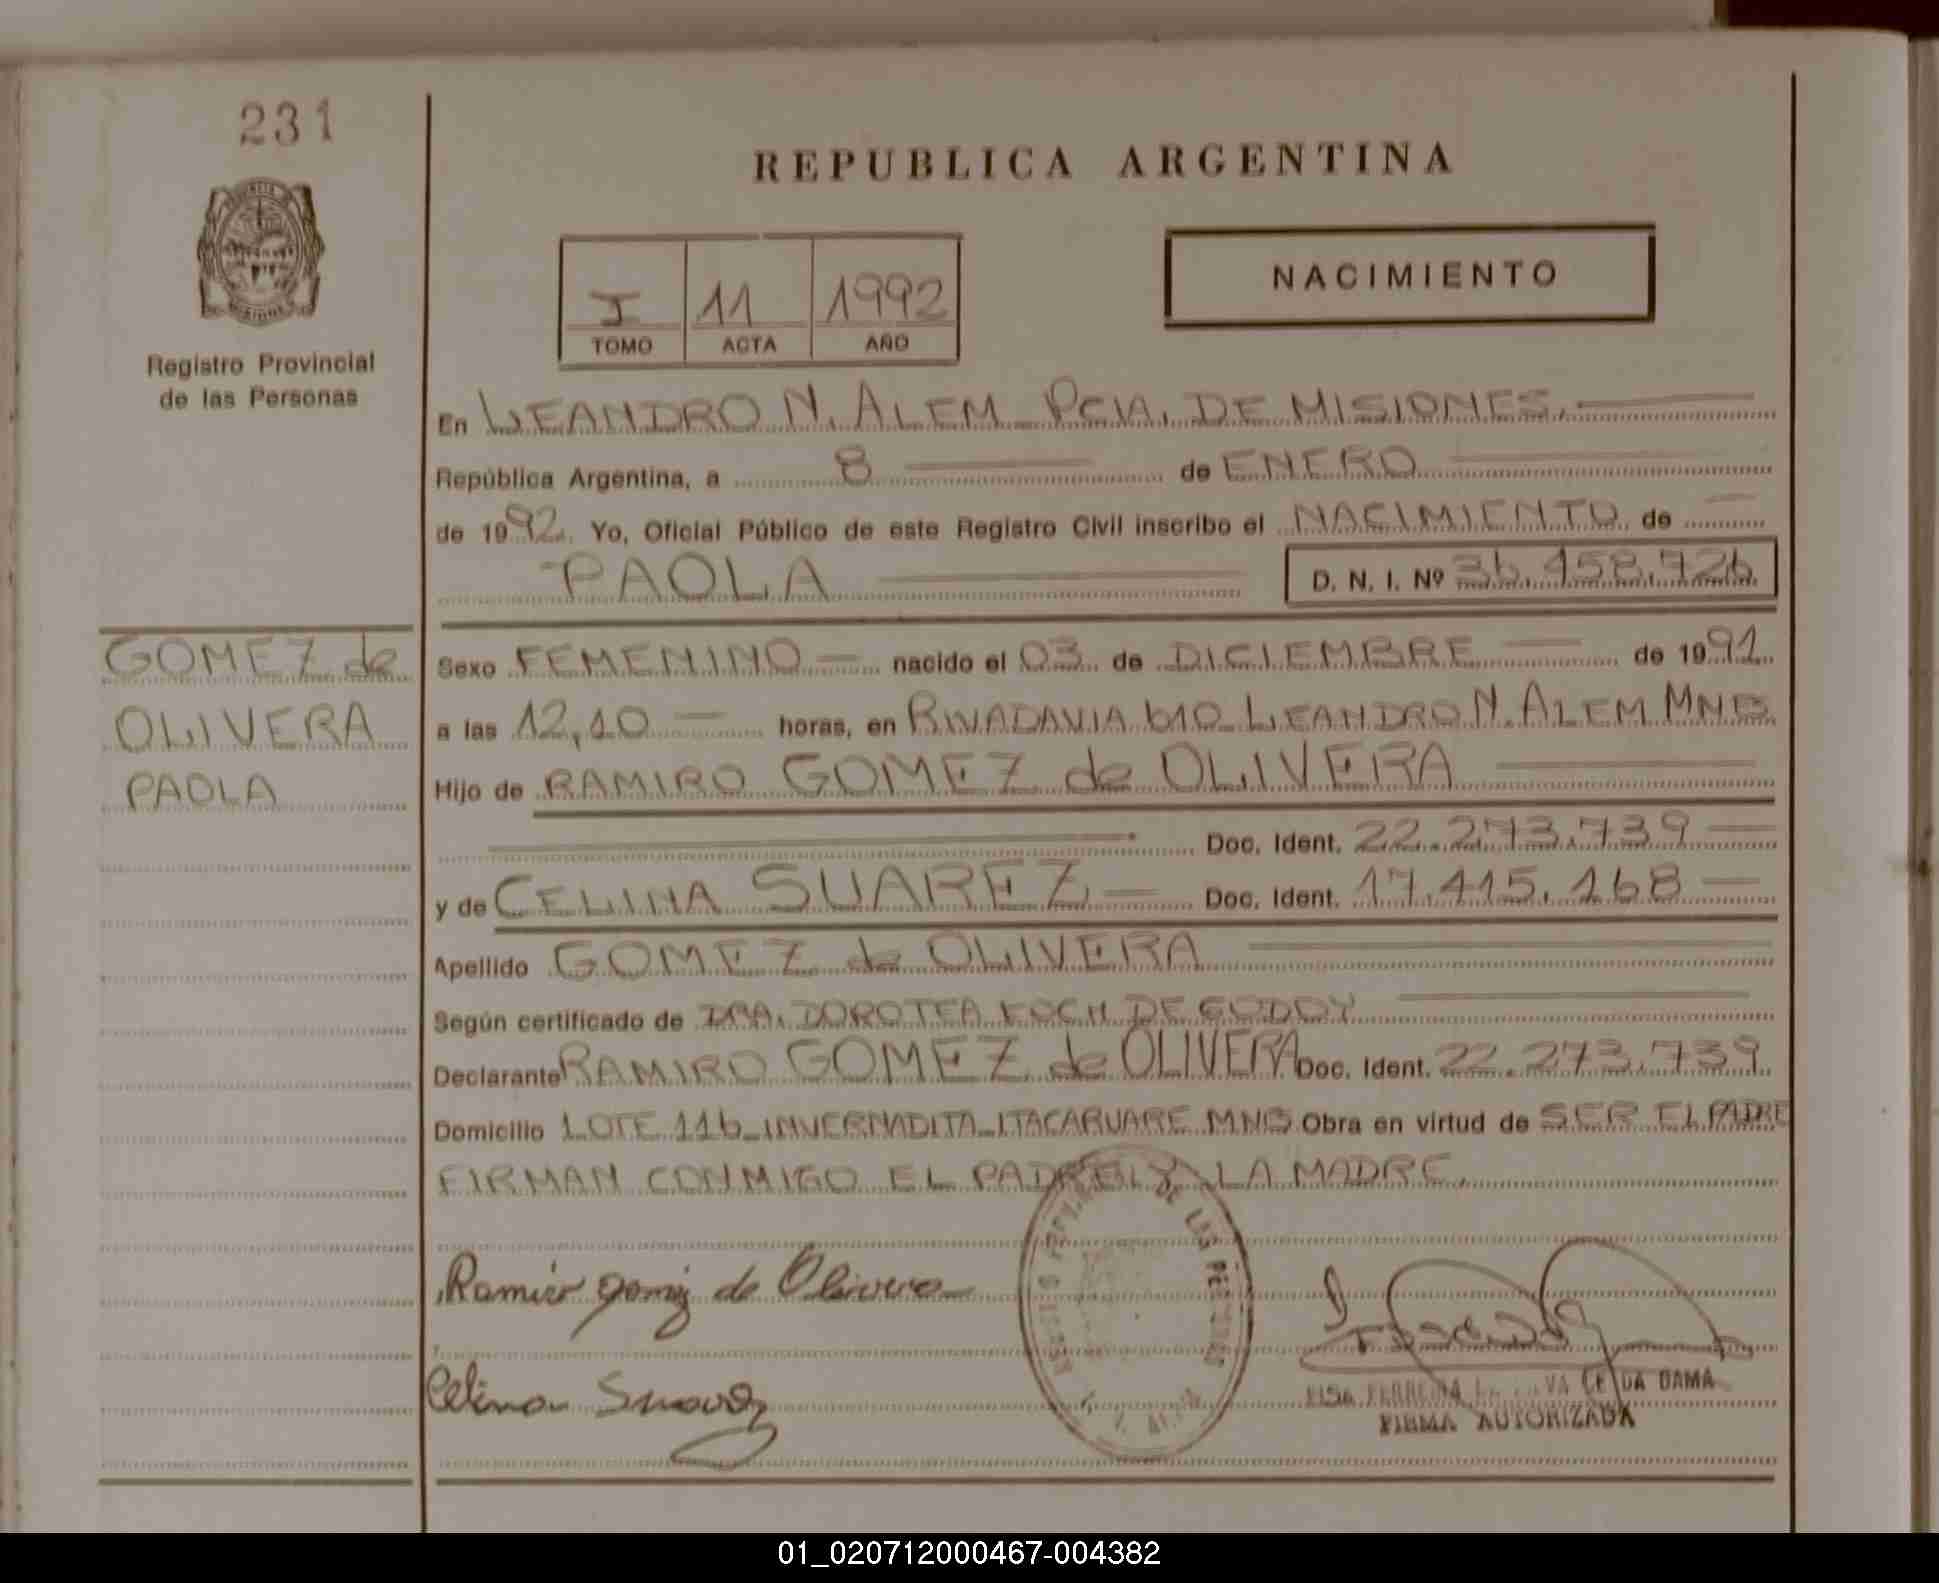 231
Registro Provincial
de las Personas
GOMEZ de
OLIVERA
PAOLA
REPUBLICA ARGENTINA
I 11 1992
TOMO ACTA AÑO
NACIMIENTO
En LEANDRO N. ALEM PCIA. DE MISIONES.
República Argentina, a 8 de ENERO
de 1992 Yo, Oficial Público de este Registro Civil inscribo el NACIMIENTO de
PAOLA D. N. I. Nº 36.458.726
Sexo FEMENINO nacido el 03 de DICIEMBRE de 1991
a las 12,10 horas, en RIVADAVIA 610 LEANDRO N. ALEM MNES
Hijo de RAMIRO GOMEZ de OLIVERA
Doc. Ident. 22.273.739
y de CELINA SUAREZ Doc. Ident. 17.415.168
Apellido GOMEZ de OLIVERA
Según certificado de DRA. DOROTEA KOCH DE GODOY
Declarante RAMIRO GOMEZ de OLIVERA Doc. Ident. 22.273.739
Domicilio LOTE 116 INVERNADITA ITACARUARE MNES Obra en virtud de SER EL PADRE
FIRMAN CONMIGO EL PADRE Y LA MADRE.
Ramiro Gomez de Olivera
Celina Suarez
DE LAS PERSONAS
FERREIRA DA GAMA
FIRMA AUTORIZADA
01_020712000467-004382